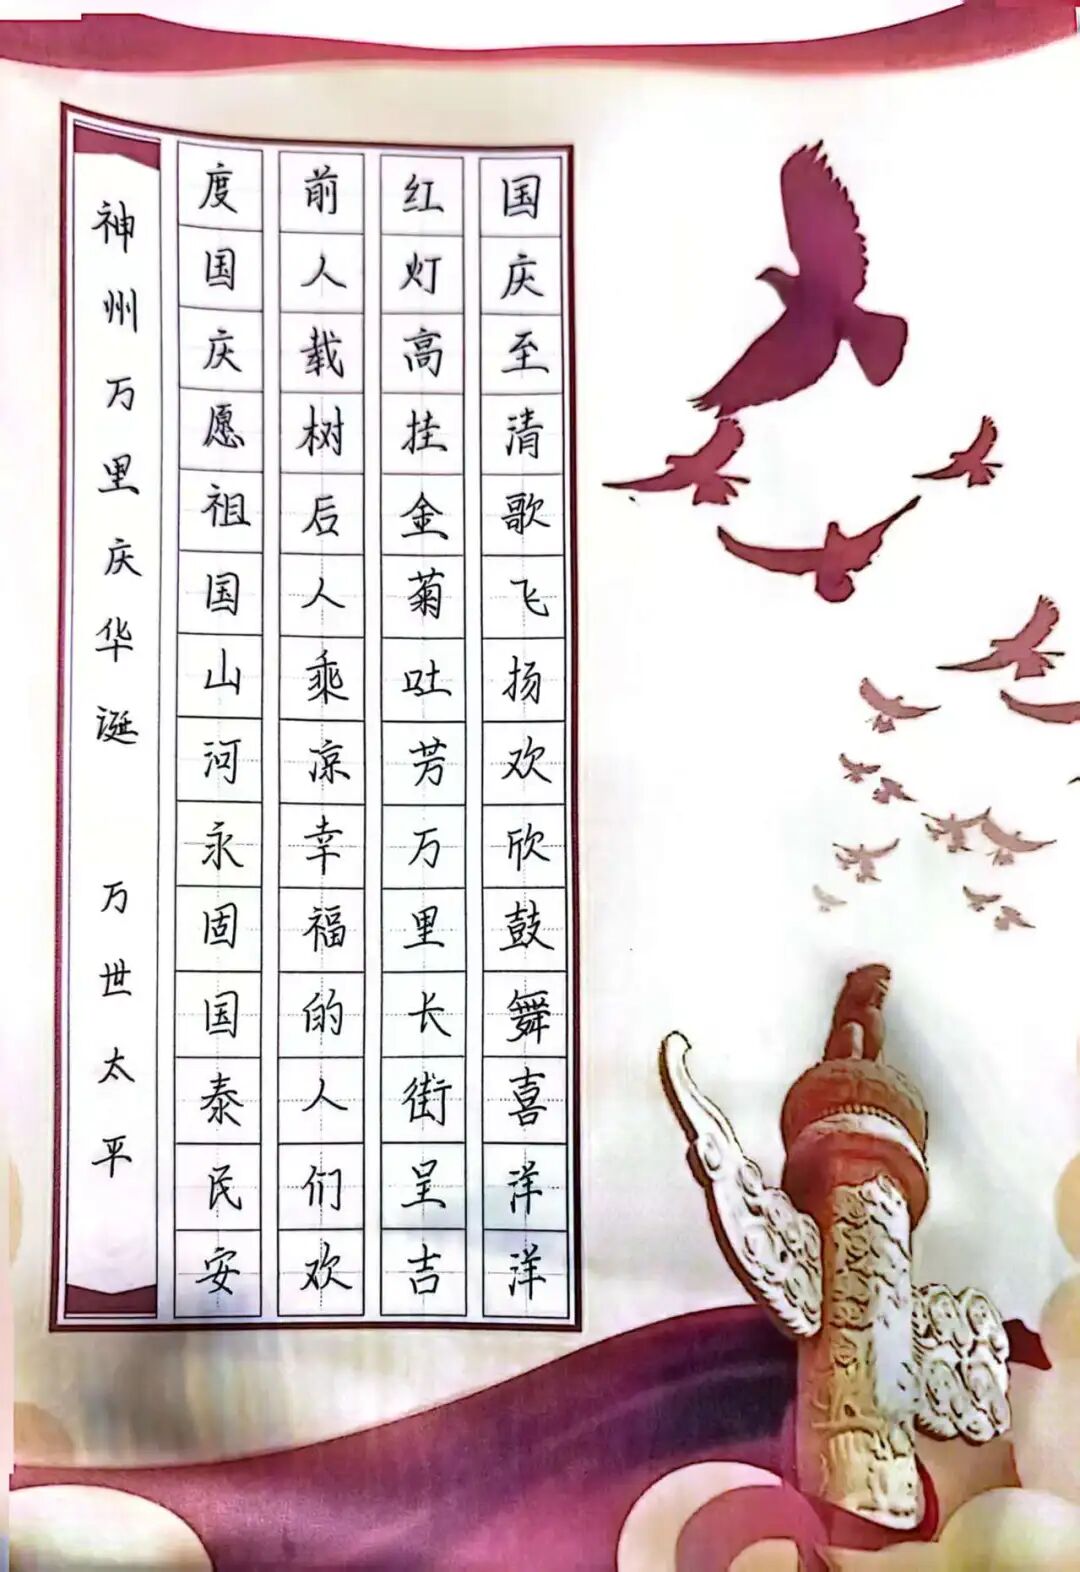 国庆至清歌飞扬欢欣鼓舞喜洋洋
红灯高挂金菊吐芳万里长街呈吉
前人载树后人乘凉幸福的人们欢
度国庆愿祖国山河永固国泰民安
神州万里庆华诞 万世太平